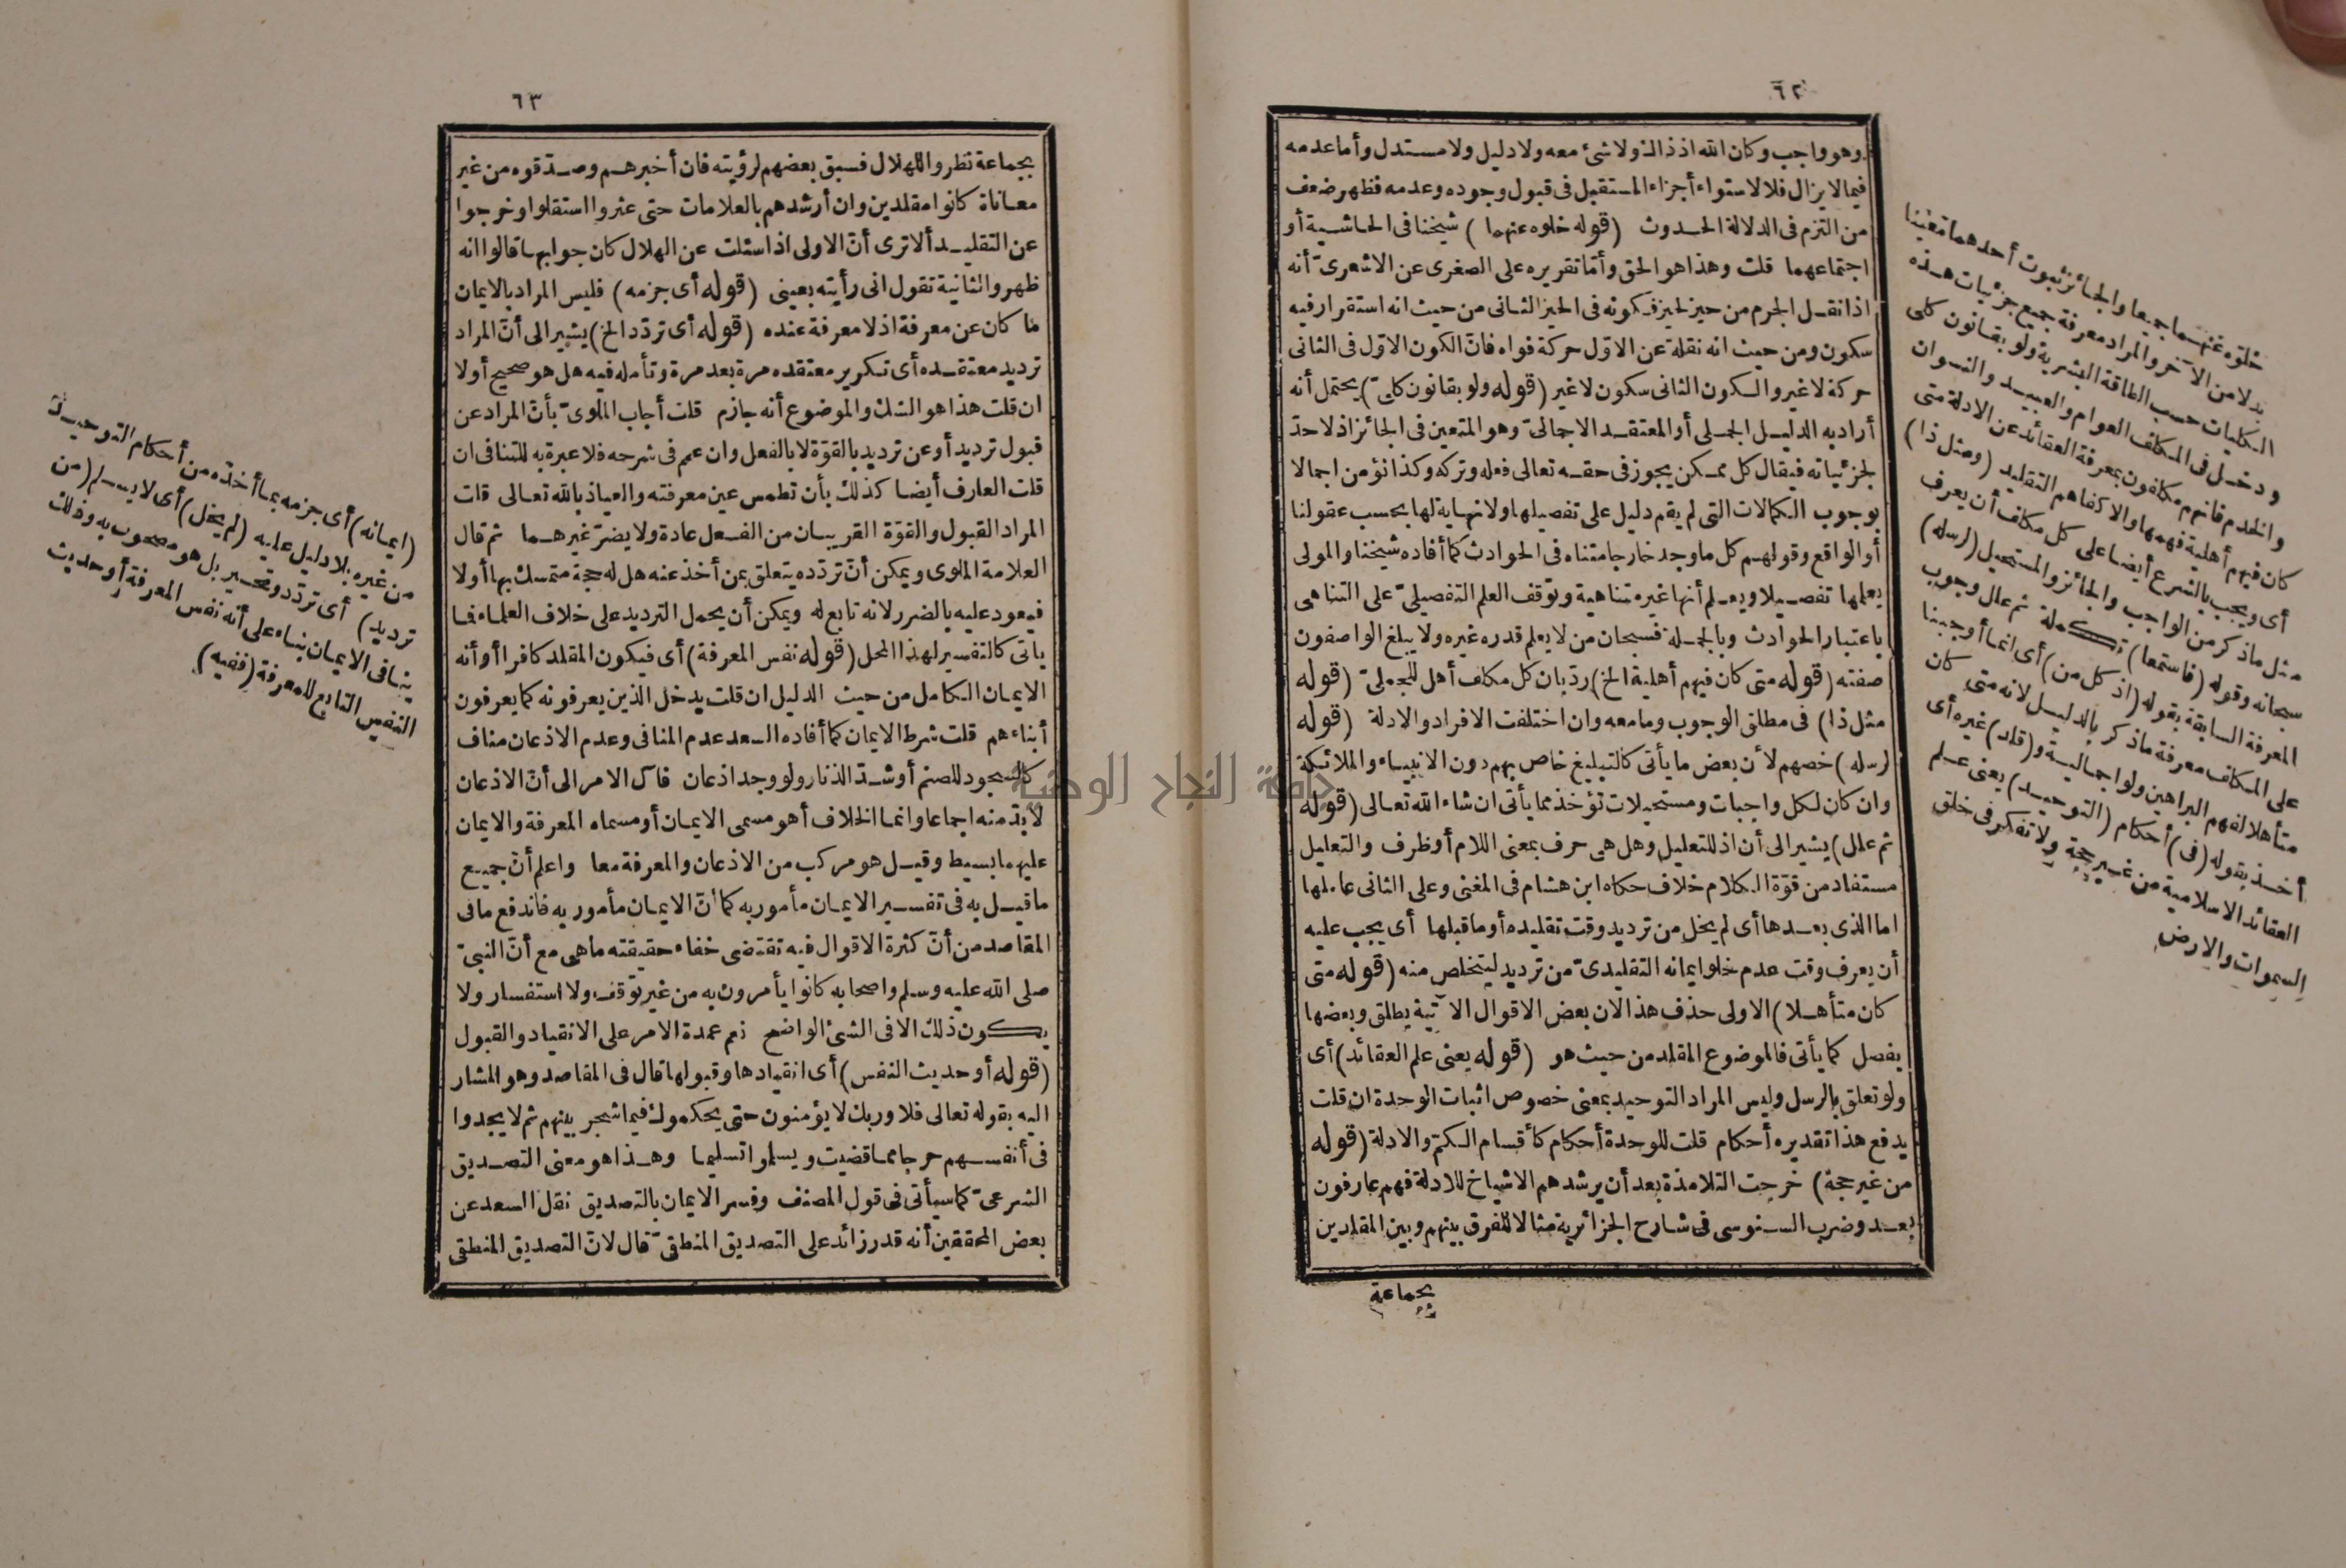 ٦٢
وهو واجب وكان الله اذ ذاك ولا شئ معه ولا دليل ولا مستدل وأما عدمه
فيما لا يزال فلا لاستواء أجزاء المستقبل فى قبول وجوده وعدمه فظهر ضعف
من التزم فى الدلالة الحدوث (قوله خلوه عنهما) شيخنا فى الحاشية أو
اجتماعهما قلت وهذا هو الحق وأما تقريره على الصغرى عن الاشعرى أنه
اذا نقل الجرم من حيز لحيز فكونه فى الحيز الثانى من حيث انه استقرار فيه
سكون ومن حيث انه نقلة عن الاول حركة فواه فان الكون الاول فى الثانى
حركة لا غير والسكون الثانى سكون لا غير (قوله ولو بقانون كلىّ) يحتمل أنه
أراد به الدليل الجملى أو المعتقد الاجمالىّ وهو المتعين فى الجائز اذ لا حدّ
لجزئياته فيقال كل ممكن يجوز فى حقه تعالى فعله وتركه وكذا نؤمن اجمالا
بوجوب الكمالات التى لم يقم دليل على تفصيلها ولا نهاية لها بحسب عقولنا
أو الواقع وقولهم كل ما وجد خارجا متناه فى الحوادث كما أفاده شيخنا والمولى
يعلمها تفصيلا ويعلم أنها غير متناهية وتوقف العلم التفصيلىّ على التناهى
باعتبار الحوادث وبالجملة فسبحان من لا يعلم قدره غيره ولا يبلغ الواصفون
صفته (قوله متى كان فيهم أهلية الخ) ردّ بان كل مكلف أهل للجملىّ (قوله
مثل ذا) فى مطلق الوجوب وما معه وان اختلفت الافراد والادلة (قوله
لرسله) خصهم لأن بعض ما يأتى كالتبليغ خاص بهم دون الانبياء والملائكة
وان كان لكل واجبات ومستحيلات تؤخذ مما يأتى ان شاء الله تعالى (قوله
ثم علل) يشير الى أن اذ للتعليل وهل هى حرف بمعنى اللام أو ظرف والتعليل
مستفاد من قوّة الكلام خلاف حكاه ابن هشام فى المغنى وعلى الثانى عاملها
اما الذى بعدها أى لم يخل من ترديد وقت تقليده أو ما قبلها أى يجب عليه
أن يعرف وقت عدم خلو ايمانه التقليدىّ من ترديد ليتخلص منه (قوله متى
كان متأهلا) الاولى حذف هذا لان بعض الاقوال الآتية يطلق وبعضها
يفصل كما يأتى فالموضوع المقلد من حيث هو (قوله يعنى علم العقائد) أى
ولو تعلق بالرسل وليس المراد التوحيد بمعنى خصوص اثبات الوحدة ان قلت
يدفع هذا تقديره أحكام قلت للوحدة أحكام كأقسام الكمّ والادلة (قوله
من غير حجة) خرجت التلامذة بعد أن يرشدهم الاشياخ للادلة فهم عارفون
بعد وضرب السنوسى فى شارح الجزائرية مثالا للفرق بينهم وبين المقلدين
بجماعة
خلوّه عنهما جميعا والجائز ثبوت أحدهما معينا
بدلا من الآخر والمراد معرفة جميع جزئيات هذه
الكليات حسب الطاقة البشرية ولو بقانون كلى
ودخل فى المكلف العوام والعبيد والنسوان
والخدم فانهم مكلفون بمعرفة العقائد عن الادلة متى
كان فيهم أهلية فهمها والا كفاهم التقليد (ومثل ذا)
أى ويجب بالشرع أيضا على كل مكلف أن يعرف
مثل ما ذكر من الواجب والجائز والمستحيل (لرسله)
سبحانه وقوله (فاستمعا) تكملة ثم علل وجوب
المعرفة السابقة بقوله (اذ كل من) أى انما أوجبنا
على المكلف معرفة ما ذكر بالدليل لانه متى كان
متأهلا لفهم البراهين ولو اجمالية و (قلد) غيره أى
أخذ بقوله (فى) أحكام (التوحيد) يعنى علم
العقائد الاسلامية من غير حجة ولا تفكر فى خلق
السموات والارض
٦٣
بجماعة نظروا للهلال فسبق بعضهم لرؤيته فان أخبرهم وصدّقوه من غير
معاناة كانوا مقلدين وان أرشدهم بالعلامات حتى عثروا استقلوا وخرجوا
عن التقليد ألا ترى أن الاولى اذا سئلت عن الهلال كان جوابها قالوا انه
ظهر والثانية تقول انى رأيته بعينى (قوله أى جزمه) فليس المراد بالايمان
ما كان عن معرفة اذ لا معرفة عنده (قوله أى تردّد الخ) يشير الى أن المراد
ترديد معتقده أى تكرير معتقده مرة بعد مرة وتأمله فيه هل هو صحيح أو لا
ان قلت هذا هو الشك والموضوع أنه جازم قلت أجاب الملوىّ بأن المراد عن
قبول ترديد أو عن ترديد بالقوّة لا بالفعل وان عمم فى شرحه فلا عبرة به للتنافى ان
قلت العارف أيضا كذلك بأن تطمس عين معرفته والعياذ بالله تعالى قلت
المراد القبول والقوّة القريبان من الفعل عادة ولا يضرّ غيرهما ثم قال
العلامة الملوى ويمكن أنّ تردّده يتعلق بمن أخذ عنه هل له حجة متمسك بها أو لا
فيعود عليه بالضرر لانه تابع له ويمكن أن يحمل الترديد على خلاف العلماء فما
يأتى كالتفسير لهذا المحل (قوله نفس المعرفة) أى فيكون المقلد كافرا أو أنه
الايمان الكامل من حيث الدليل ان قلت يدخل الذين يعرفونه كما يعرفون
أبناءهم قلت شرط الايمان كما أفاده السعد عدم المنافى وعدم الاذعان مناف
كالسجود للصنم أو شدّ الزنار ولو وجد اذعان فآل الامر الى أن الاذعان
لا بدّ منه اجماعا وانما الخلاف أهو مسمى الايمان أو مسماه المعرفة والايمان
عليهما بسيط وقيل هو مركب من الاذعان والمعرفة معا واعلم أنّ جميع
ما قيل به فى تفسير الايمان مأمور به كما أنّ الايمان مأمور به فاندفع ما فى
المقاصد من أنّ كثرة الاقوال فيه تقتضى خفاء حقيقته ما هى مع أنّ النبىّ
صلى الله عليه وسلم واصحابه كانوا يأمرون به من غير توقف ولا استفسار ولا
يكون ذلك الا فى الشئ الواضح نعم عمدة الامر على الانقياد والقبول
(قوله أو حديث النفس) أى انقيادها وقبولها قال فى المقاصد وهو المشار
اليه بقوله تعالى فلا وربك لا يؤمنون حتى يحكموك فيما شجر بينهم ثم لا يجدوا
فى أنفسهم حرجا مما قضيت ويسلموا تسليما وهذا هو معنى التصديق
الشرعىّ كما سيأتى فى قول المصنف وفسر الايمان بالتصديق نقل السعد عن
بعض المحققين أنه قدر زائد على التصديق المنطقىّ قال لانّ التصديق المنطقى
(ايمانه) أى جزمه بما أخذه من أحكام التوحيد
من غيره بلا دليل عليه (لم يخل) أى لا يسلم (من
ترديد) أى تردّد وتحير بل هو مصحوب به وذلك
ينافى الايمان بناء على أنه نفس المعرفة أو حديث
النفس التابع للمعرفة (ففيه)
جامعة النجاح الوطنية